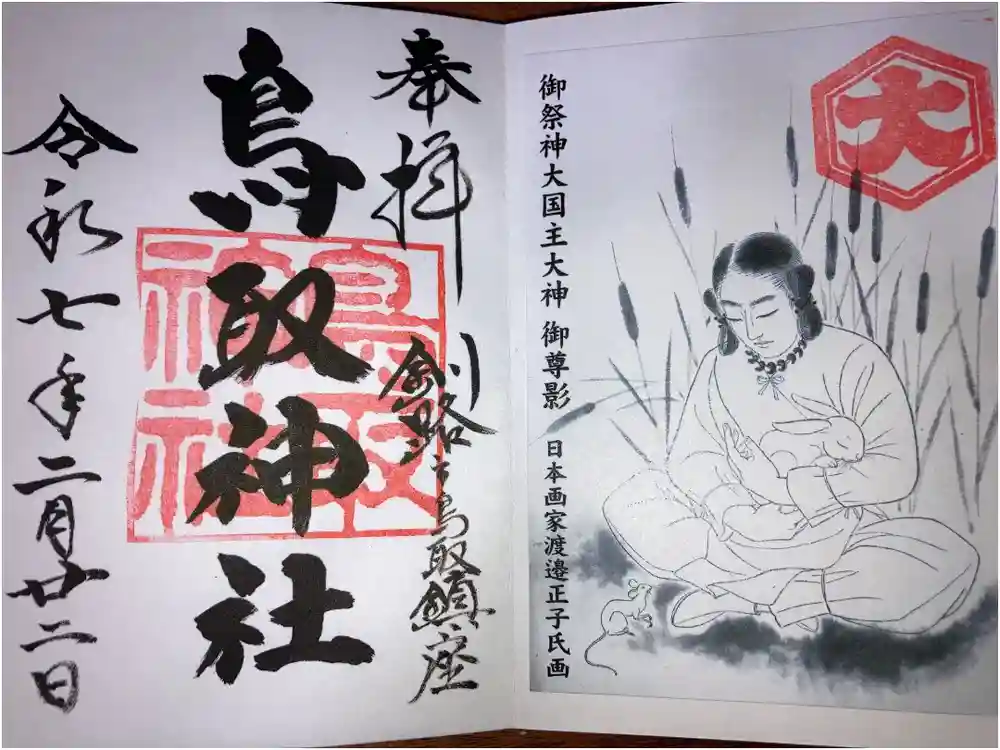 大
御祭神大国主大神 御尊影 日本画家渡邉正子氏画
奉拝
釧路之鳥取鎮座
鳥取神社
鳥取
神社
令和七年二月廿二日